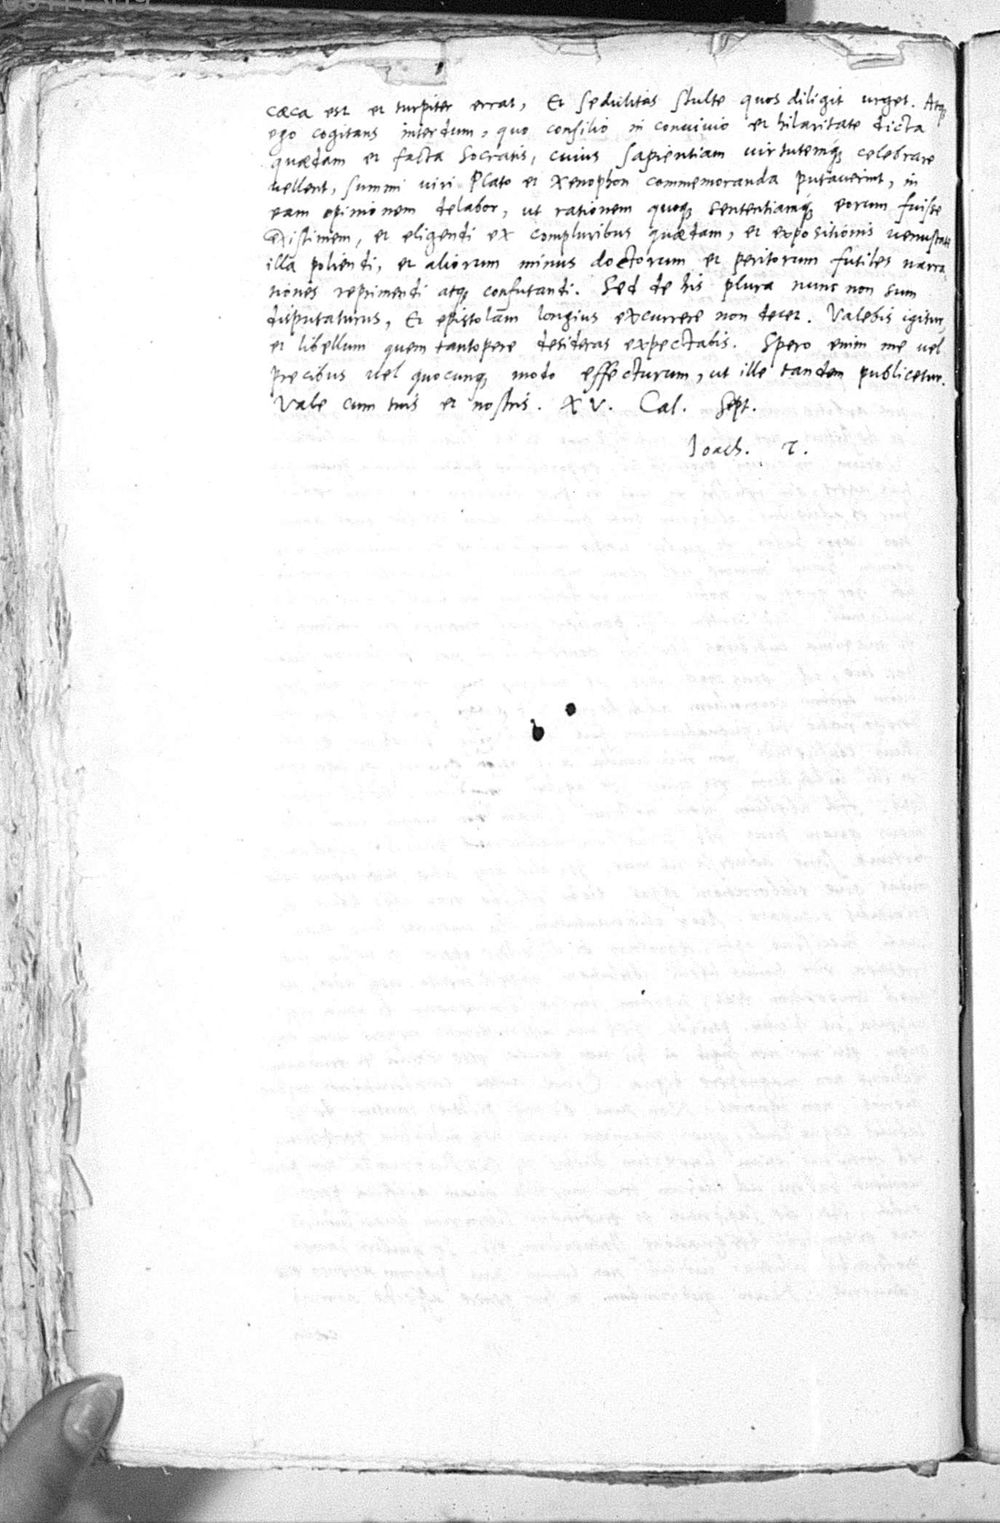 cæca est et turpiter errat, Et sedulitas stulte quos diligit urget. Atq́
ego cogitans interdum, quo consilio in convivio et hilaritate dicta
quædam et facta Socratis, cuius sapientiam virtutemq́ celebrare
vellent, summi viri Plato et Xenophon commemoranda putaverint, in
eam opinionem delabor, ut rationem quoq́ sententiamq́ eorum fuisse
existimem, et eligendi ex compluribus quædam, et expositionis venustate
illa poliendi, et aliorum minus doctorum et peritorum futiles narra
tiones reprimendi atq́ confutandi. Sed de his plura nunc non sum
disputaturus, Et epistolam longius excurrere non decet. Valebis igitur,
et libellum quem tantopere desideras expectabis. Spero enim me vel
precibus vel quocunq́ modo effecturum, ut ille tandem publicetur.
Vale cum tuis et nostris. XV. Cal. Sept.
Ioach. C.